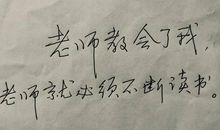 老师教会了我，
老师就必须不断读书。